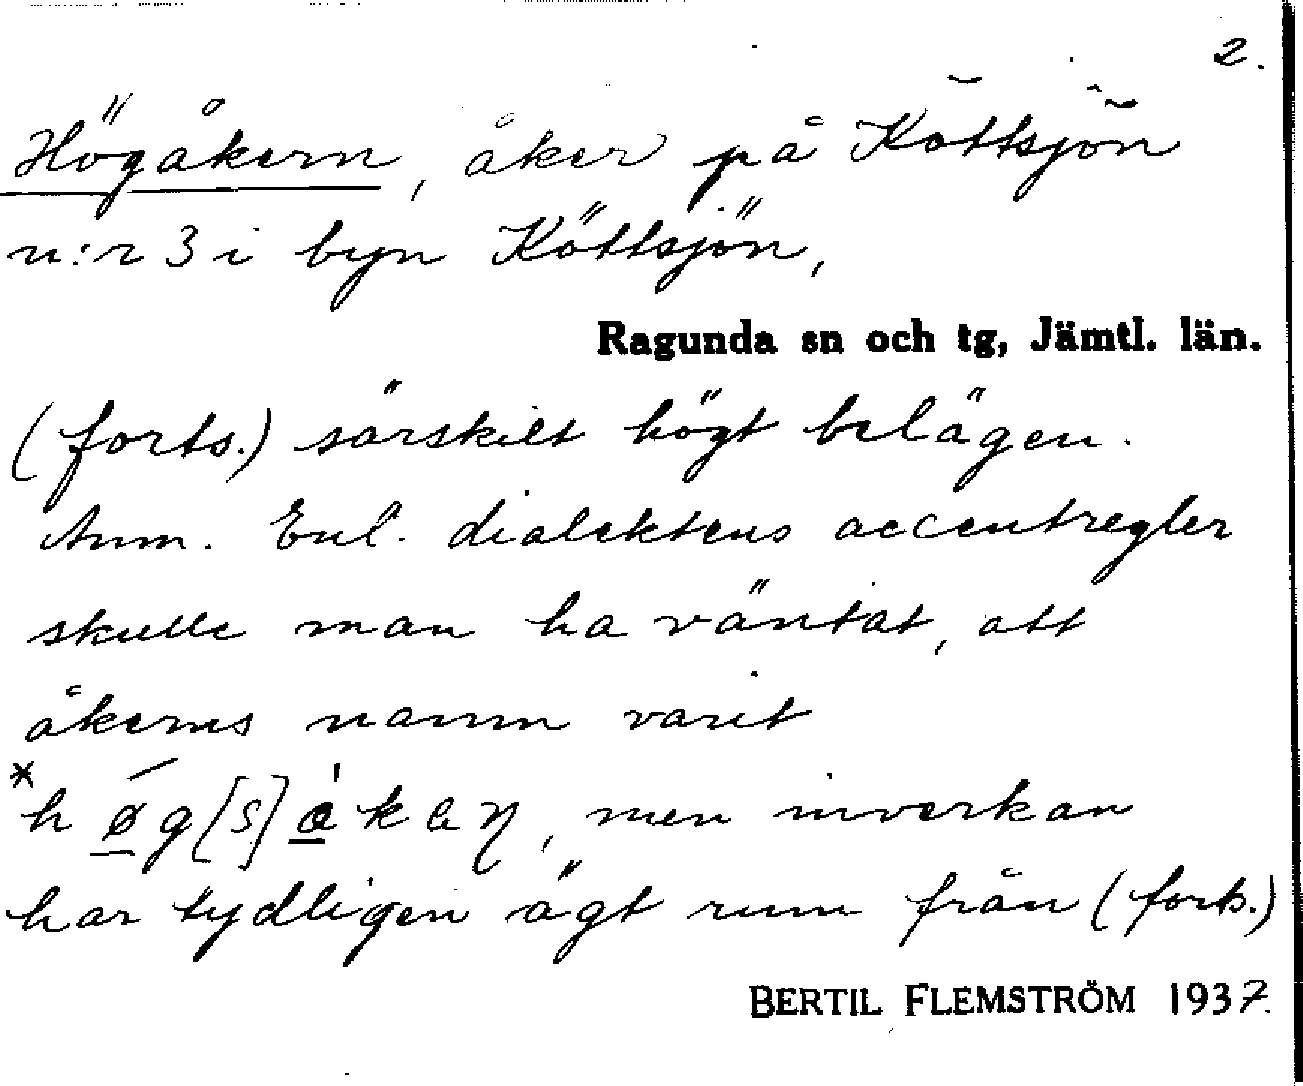 2.
Högåkern, åker på Köttsjön
n:r 3 i byn Köttsjön,
Ragunda sn och tg, Jämtl. län.
(forts.) särskilt högt belägen.
Anm. Enl. dialektens accentregler
skulle man ha väntat, att
åkerns namn varit
*høg[s]åkaη, men inverkan
har tydligen ägt rum från (forts.)
BERTIL FLEMSTRÖM 1937.